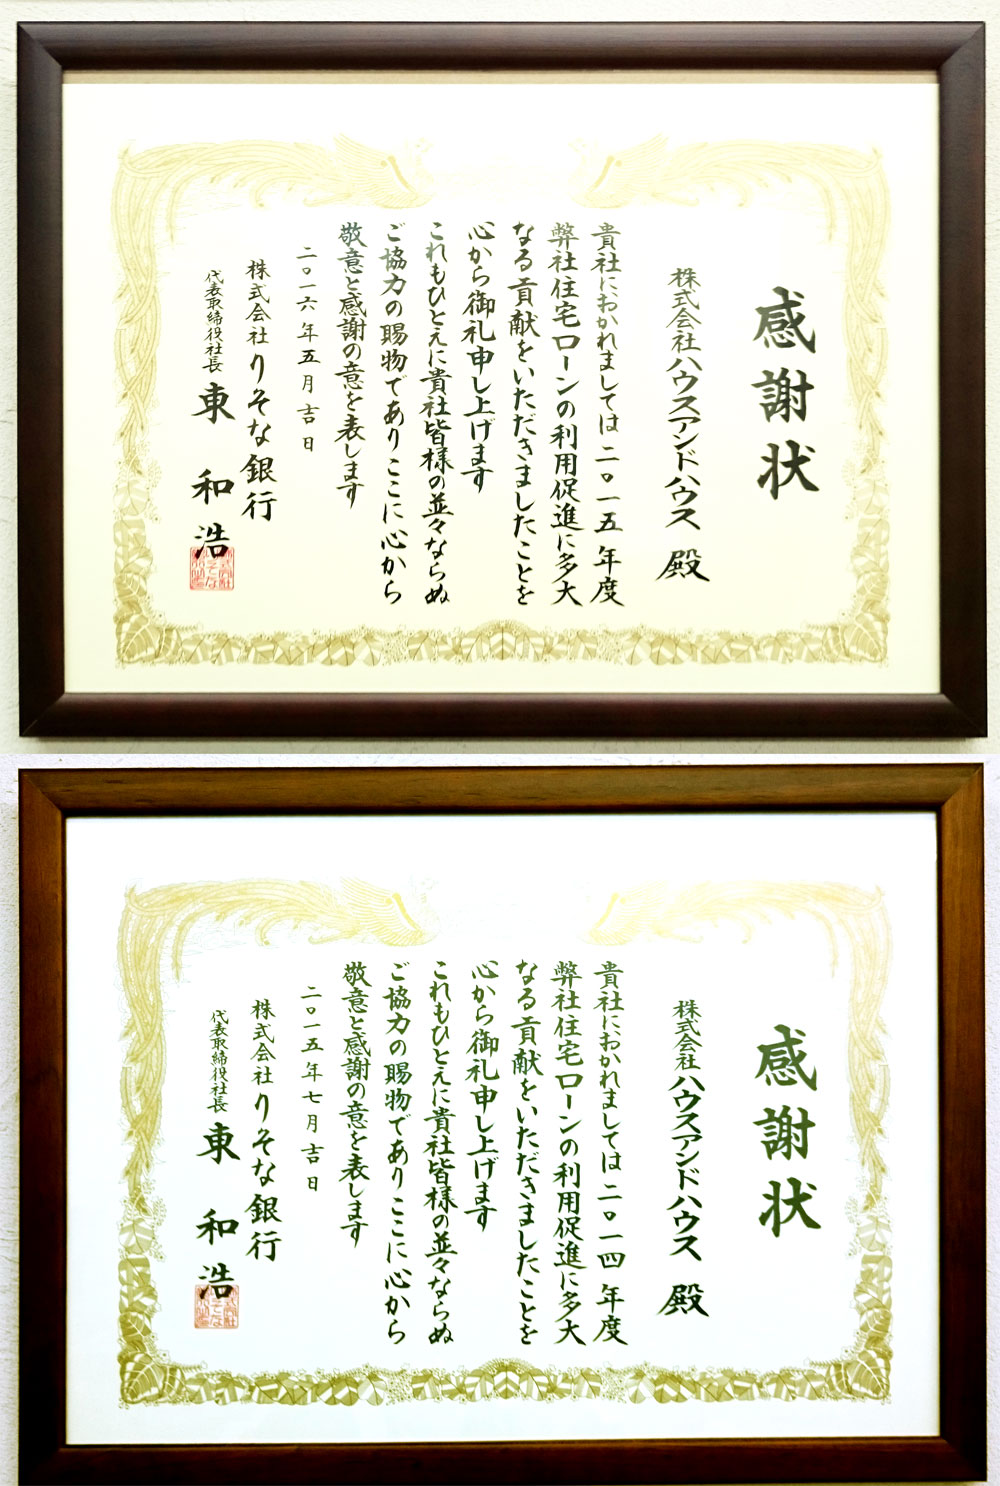 感謝状
株式会社ハウスアンドハウス 殿
貴社におかれましては二〇一五年度
弊社住宅ローンの利用促進に多大
なる貢献をいただきましたことを
心から御礼申し上げます
これもひとえに貴社皆様の並々ならぬ
ご協力の賜物でありここに心から
敬意と感謝の意を表します
二〇一六年五月吉日
株式会社りそな銀行
代表取締役社長 東 和浩
感謝状
株式会社ハウスアンドハウス 殿
貴社におかれましては二〇一四年度
弊社住宅ローンの利用促進に多大
なる貢献をいただきましたことを
心から御礼申し上げます
これもひとえに貴社皆様の並々ならぬ
ご協力の賜物でありここに心から
敬意と感謝の意を表します
二〇一五年七月吉日
株式会社りそな銀行
代表取締役社長 東 和浩